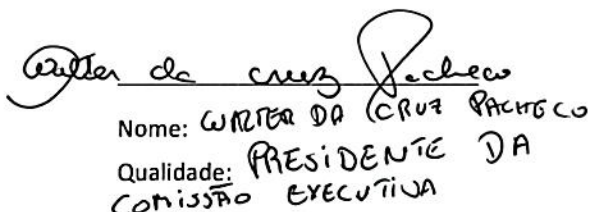 Walter da Cruz Pacheco
Nome: WALTER DA CRUZ PACHECO
Qualidade: PRESIDENTE DA
COMISSÃO EXECUTIVA